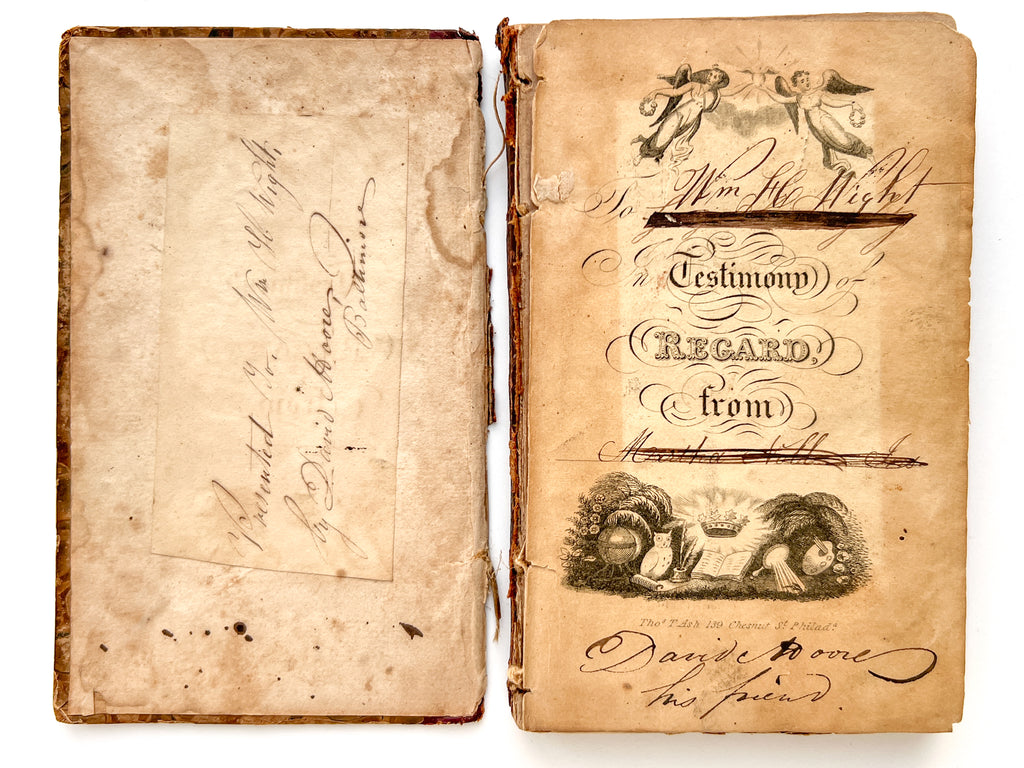 Presented To. Wm H. Wight.
by David Moore
Baltimore
To Wm H Wight
In Testimony of
REGARD,
from
Martha
Thos. T. Ash 139 Chesnut St. Philada.
David Moore
his friend